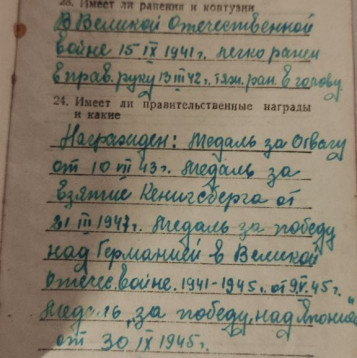 23. Имеет ли ранения и контузии
В Великой Отечественной
войне 15 IX 1941 г. легко ранен
в прав. руку 13 III 42 г. тяж. ран. в голову
24. Имеет ли правительственные награды
и какие
Награжден: Медаль за Отвагу
от 10 VII 43 г. Медаль за
взятие Кенигсберга от
31 III 1947 г. Медаль за победу
над Германией в Великой
Отечес. войне. 1941-1945 г. от 9.V.45 г.
Медаль „за победу над Японией"
от 30 IX 1945 г.